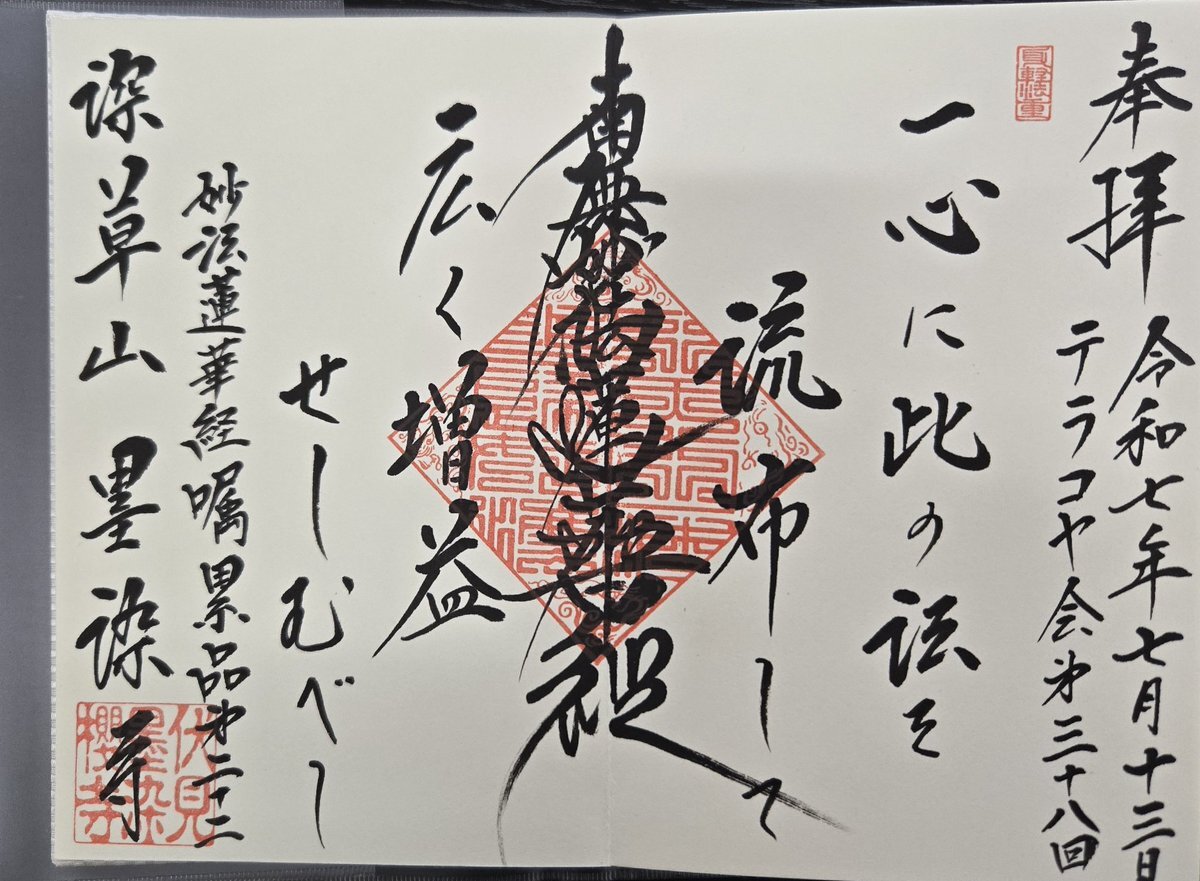 奉拝
令和七年七月十三日
テラコヤ会第三十八回
身軽法重
一心に此の法を
流布して
南無妙法蓮華経
広く増益
せしむべし
妙法蓮華経嘱累品第二十二
深草山 墨染寺
伏見
墨染
櫻寺